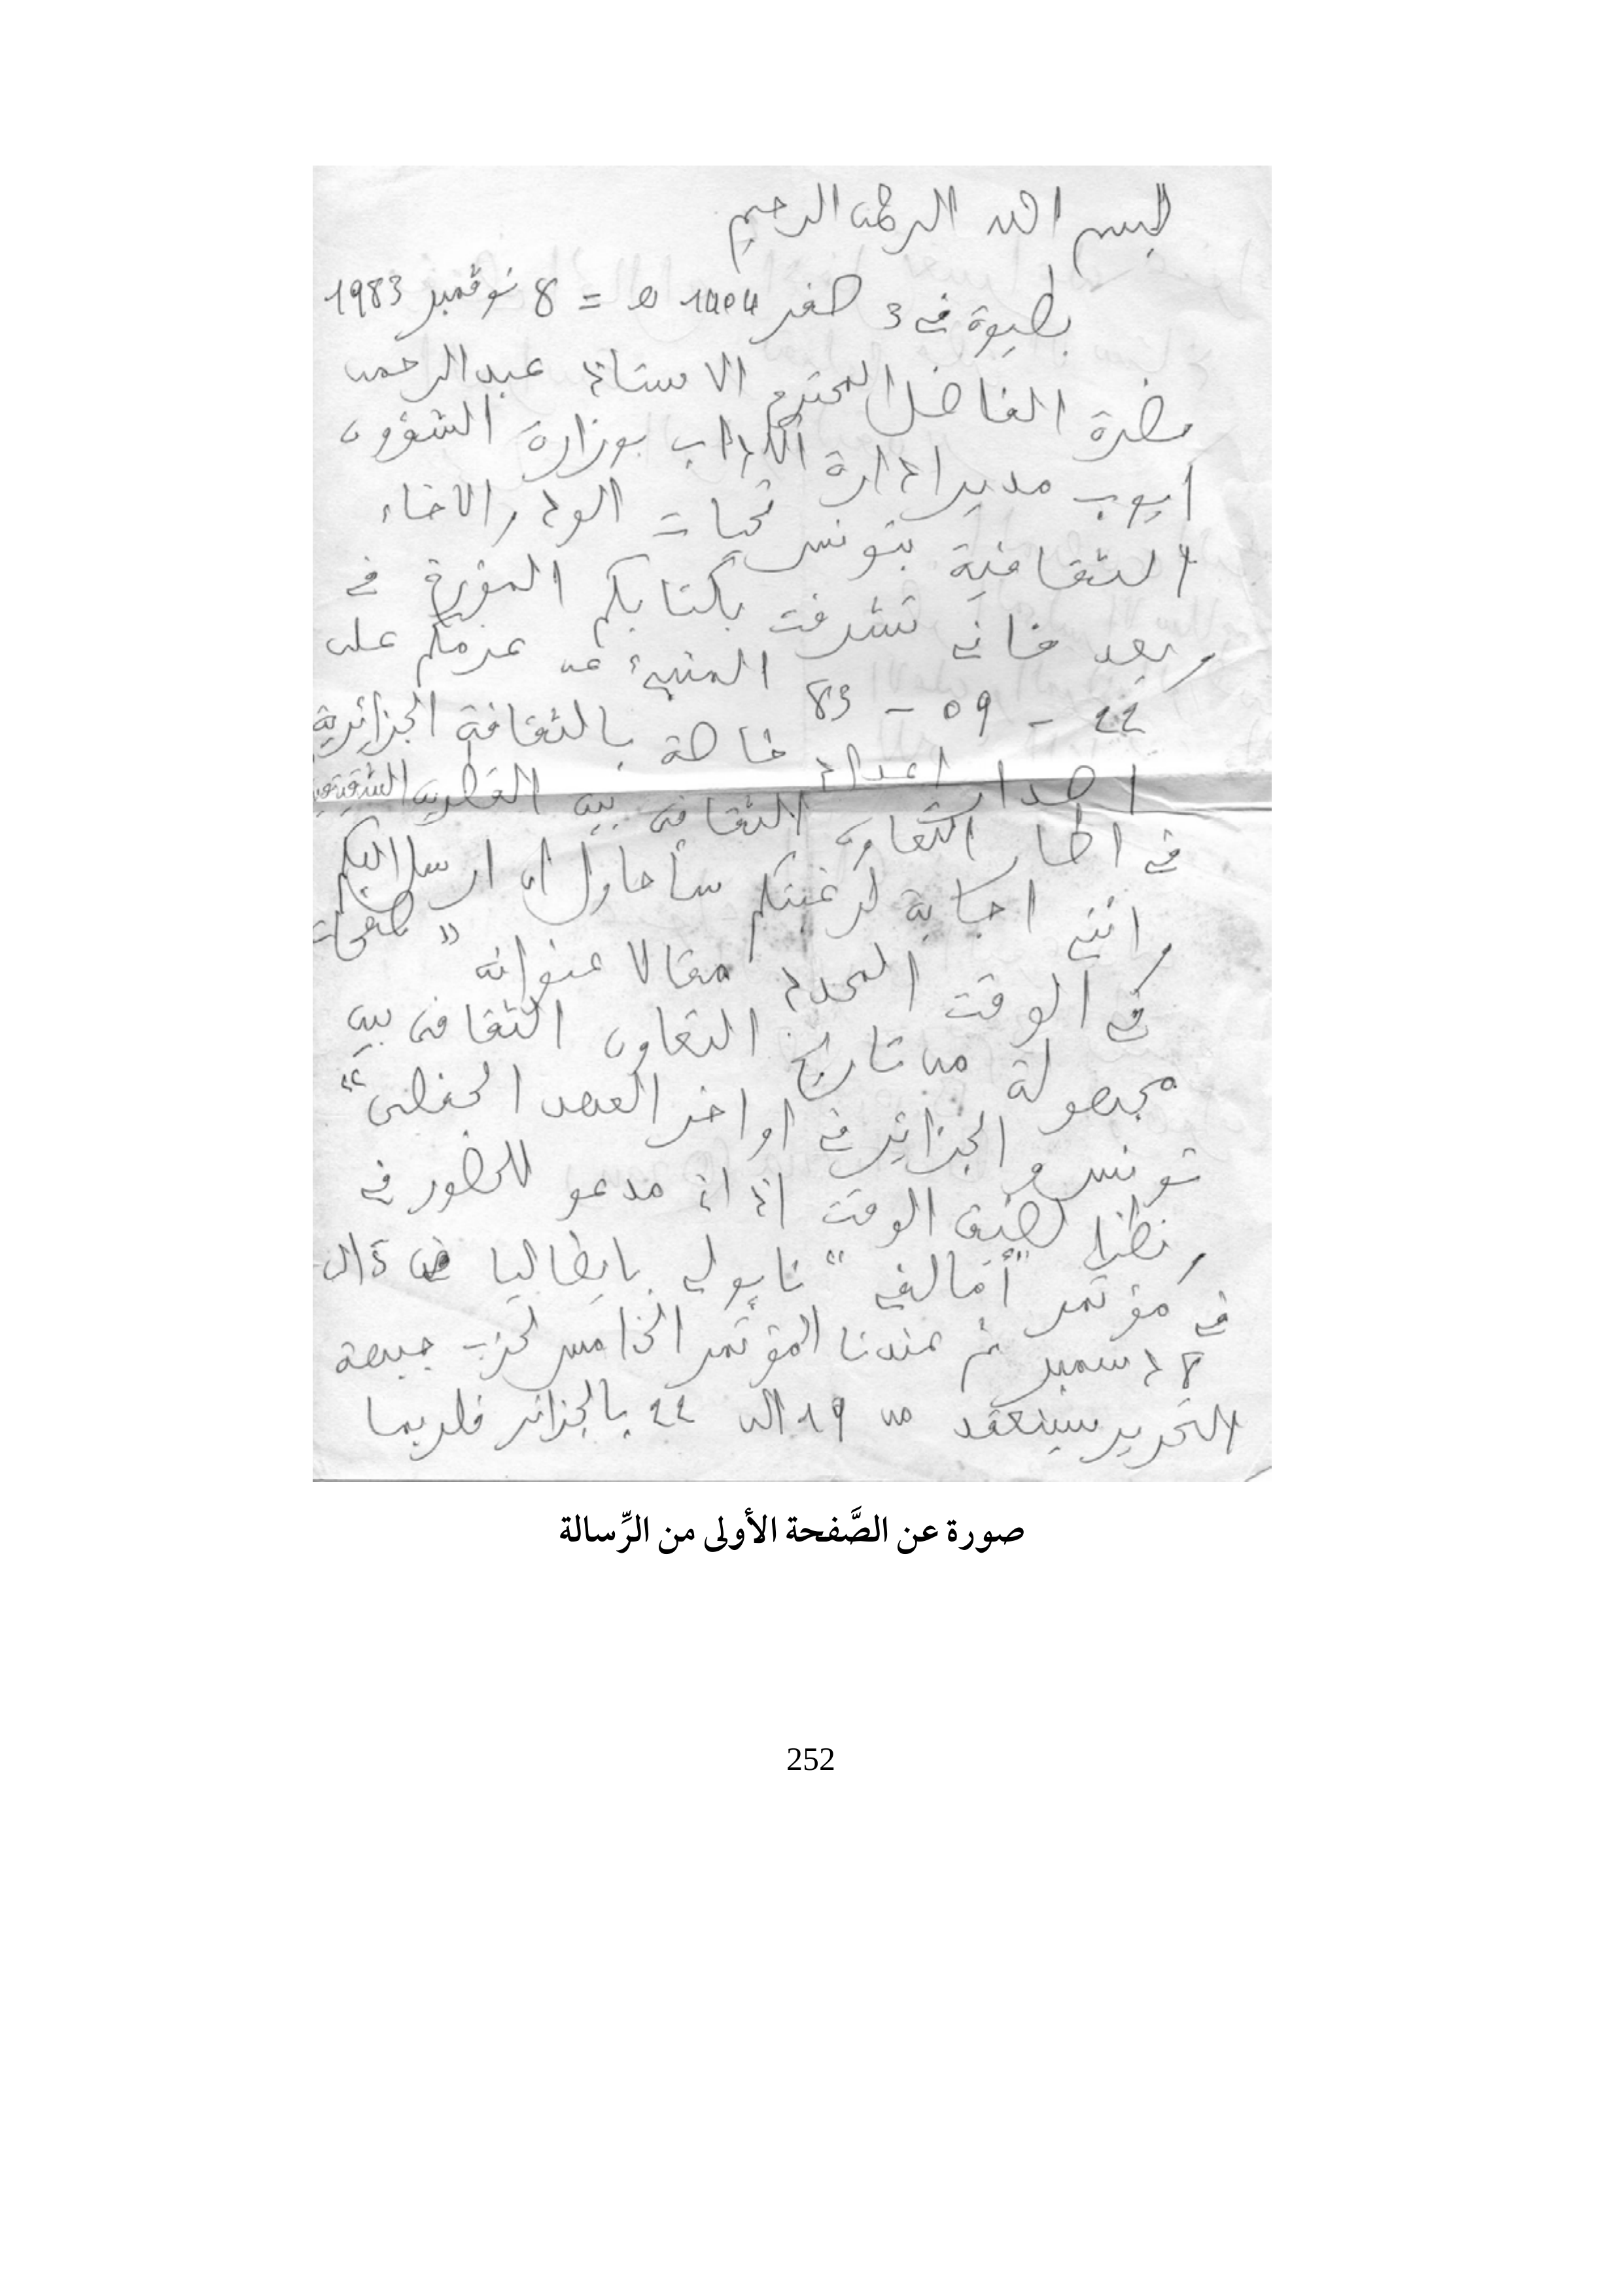 بسم الله الرحمن الرحيم
بطيوة في 3 صفر 1404 ه = 8 نوفمبر 1983
حضرة الفاضل المحترم الاستاذ عبد الرحمن
ايوب مدير ادارة الآداب بوزارة الشؤون
الثقافية بتونس تحيات الود والاخاء
وبعد فاني تشرفت بكتابكم المؤرخ في
22 - 09 - 83 المنبئ عن عزمكم على
اصدار اعداد خاصة بالثقافة الجزائرية
في اطار التعاون الثقافي بين القطرين الشقيقين
وانني اجابة لرغبتكم سأحاول ان ارسل اليكم
في الوقت المحدد مقالا عنوانه " صفحات
مجهولة من تاريخ التعاون الثقافي بين
تونس والجزائر في اواخر العهد الحفصي "
ونظرا لضيق الوقت اذ انا مدعو للحضور في
في مؤتمر "أمالفي" نابولي بايطاليا من 5 الى
8 دسمبر ثم عندنا المؤتمر الخامس لحزب جبهة
التحرير سينعقد من 19 الى 22 بالجزائر فلربما
صورة عن الصَّفحة الأولى من الرِّسالة
252